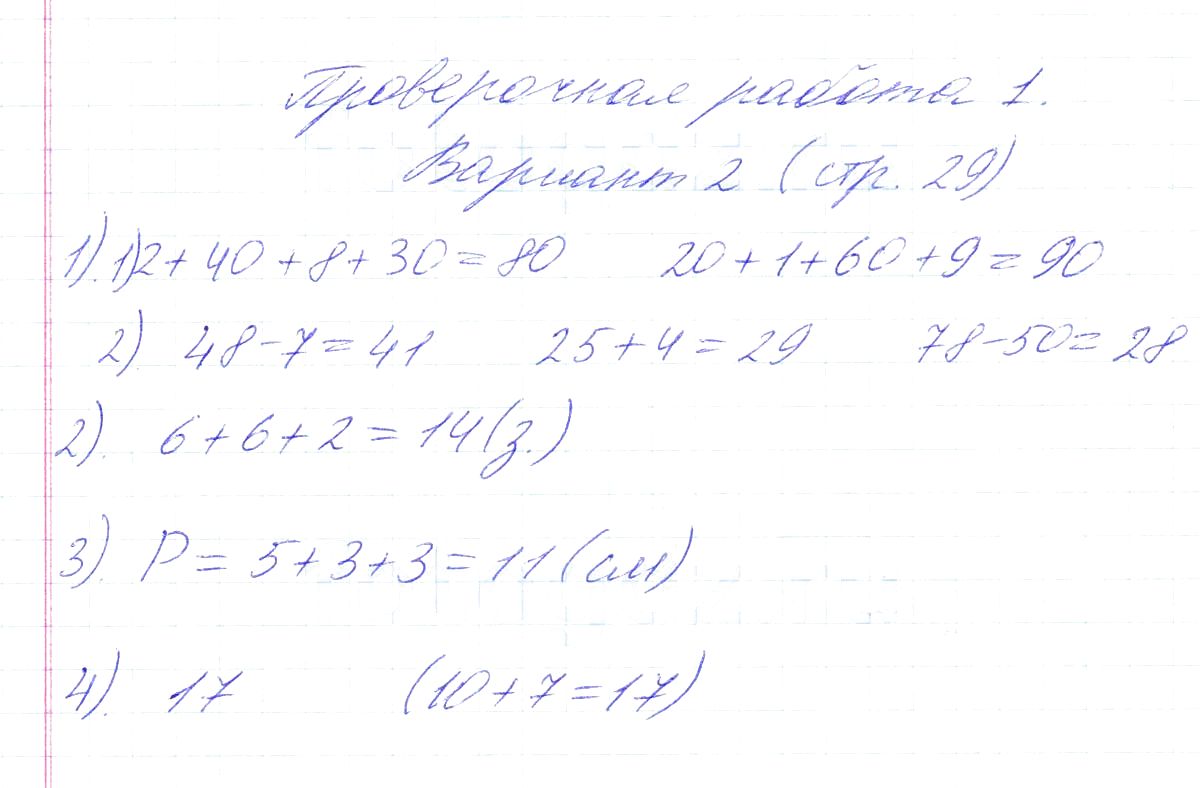 Проверочная работа 1.
Вариант 2 (стр. 29)
1). 1) 2 + 40 + 8 + 30 = 80 20 + 1 + 60 + 9 = 90
2) 48 - 7 = 41 25 + 4 = 29 78 - 50 = 28
2). 6 + 6 + 2 = 14 (з.)
3). P = 5 + 3 + 3 = 11 (см)
4). 17 (10 + 7 = 17)